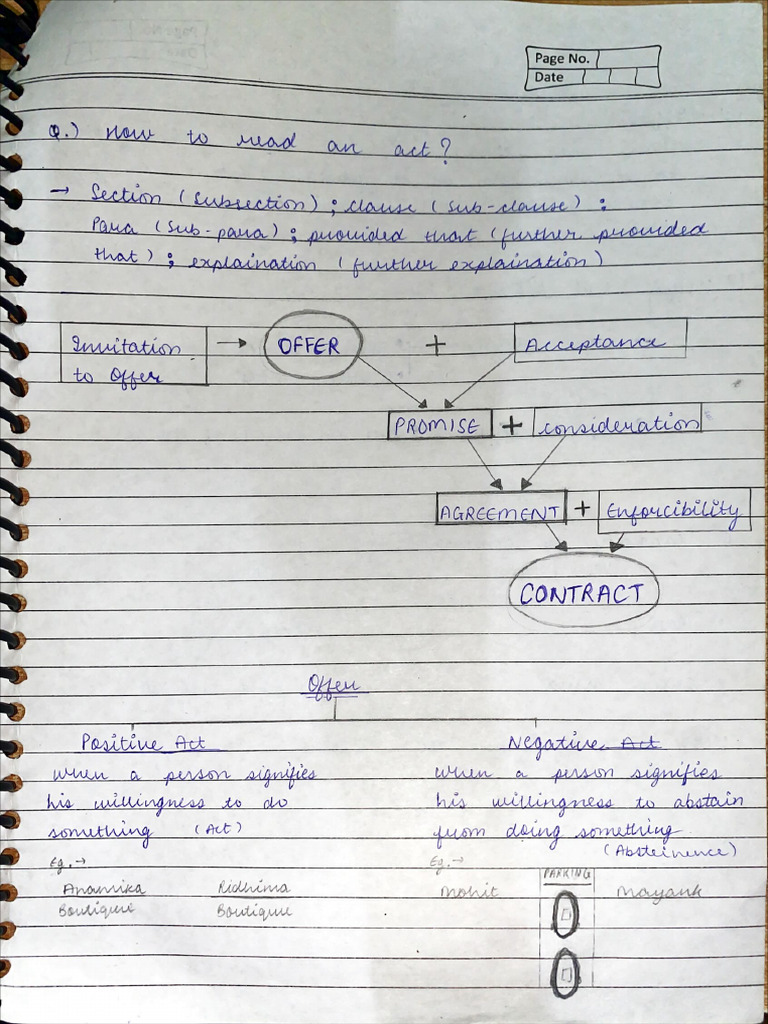 Page No.
Date
Q.) How to read an act?
→ Section (Subsection) ; clause (sub-clause) :
Para (sub-para) ; provided that (further provided
that) ; explaination (further explaination)
Invitation → OFFER + Acceptance
to Offer
PROMISE + consideration
AGREEMENT + Enforcibility
CONTRACT
Offer
Positive Act Negative Act
when a person signifies when a person signifies
his willingness to do his willingness to abstain
something (Act) from doing something
(Absteinence)
Eg.→ Eg.→ PARKING
Anamika Ridhima Mohit Mayank
Boutique Boutique